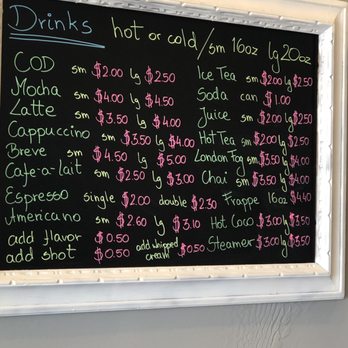 Drinks
hot or cold/sm 16oz lg 20oz
COD sm $2.00 lg $2.50
Mocha sm $4.00 lg $4.50
Latte sm $3.50 lg $4.00
Cappuccino sm $3.50 lg $4.00
Breve sm $4.50 lg $5.00
Cafe-a-lait sm $2.50 lg $3.00
Espresso single $2.00 double $2.30
Americano sm $2.60 lg $3.10
add flavor $0.50
add shot $0.50
add whipped cream $0.50
Ice Tea sm $2.00 lg $2.50
Soda can $1.00
Juice sm $2.00 lg $2.50
Hot Tea sm $2.00 lg $2.50
London Fog sm $3.50 lg $4.00
Chai sm $3.50 lg $4.00
Frappe 16oz $4.40
Hot Coco $3.00 lg $3.50
Steamer $3.00 lg $3.50